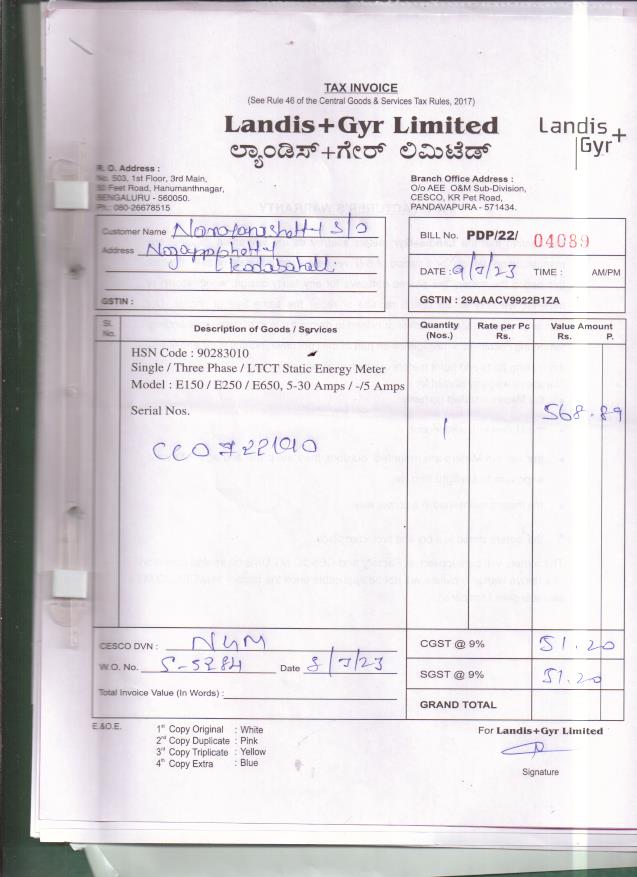 TAX INVOICE
(See Rule 46 of the Central Goods & Services Tax Rules, 2017)
Landis+Gyr Limited
ಲ್ಯಾಂಡಿಸ್+ಗೇರ್ ಲಿಮಿಟೆಡ್
Landis+
Gyr+
R. O. Address :
No. 503, 1st Floor, 3rd Main,
50 Feet Road, Hanumanthnagar,
BENGALURU - 560050.
Ph.: 080-26678515
Branch Office Address :
O/o AEE O&M Sub-Division,
CESCO, KR Pet Road,
PANDAVAPURA - 571434.
Customer Name Narayanashetty S/o
Address Nagappashetty
Kodabatalli
GSTIN :
BILL No. PDP/22/ 04089
DATE : 9/7/23 TIME : AM/PM
GSTIN : 29AAACV9922B1ZA
Sl. No. Description of Goods / Services Quantity (Nos.) Rate per Pc Rs. Value Amount Rs. P.
HSN Code : 90283010
Single / Three Phase / LTCT Static Energy Meter
Model : E150 / E250 / E650, 5-30 Amps / -/5 Amps
Serial Nos. 1 568.89
CESCO DVN : NYM
W.O. No. S-5284 Date 8/7/23
Total Invoice Value (In Words) :
CGST @ 9% 51.20
SGST @ 9% 51.20
GRAND TOTAL
E.&O.E.
1st Copy Original : White
2nd Copy Duplicate : Pink
3rd Copy Triplicate : Yellow
4th Copy Extra : Blue
For Landis+Gyr Limited
Signature